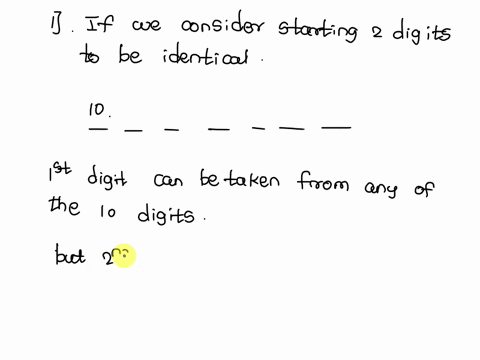 1]. If we consider starting 2 digits
to be identical.
10.
1st digit can be taken from any of
the 10 digits.
but 2n